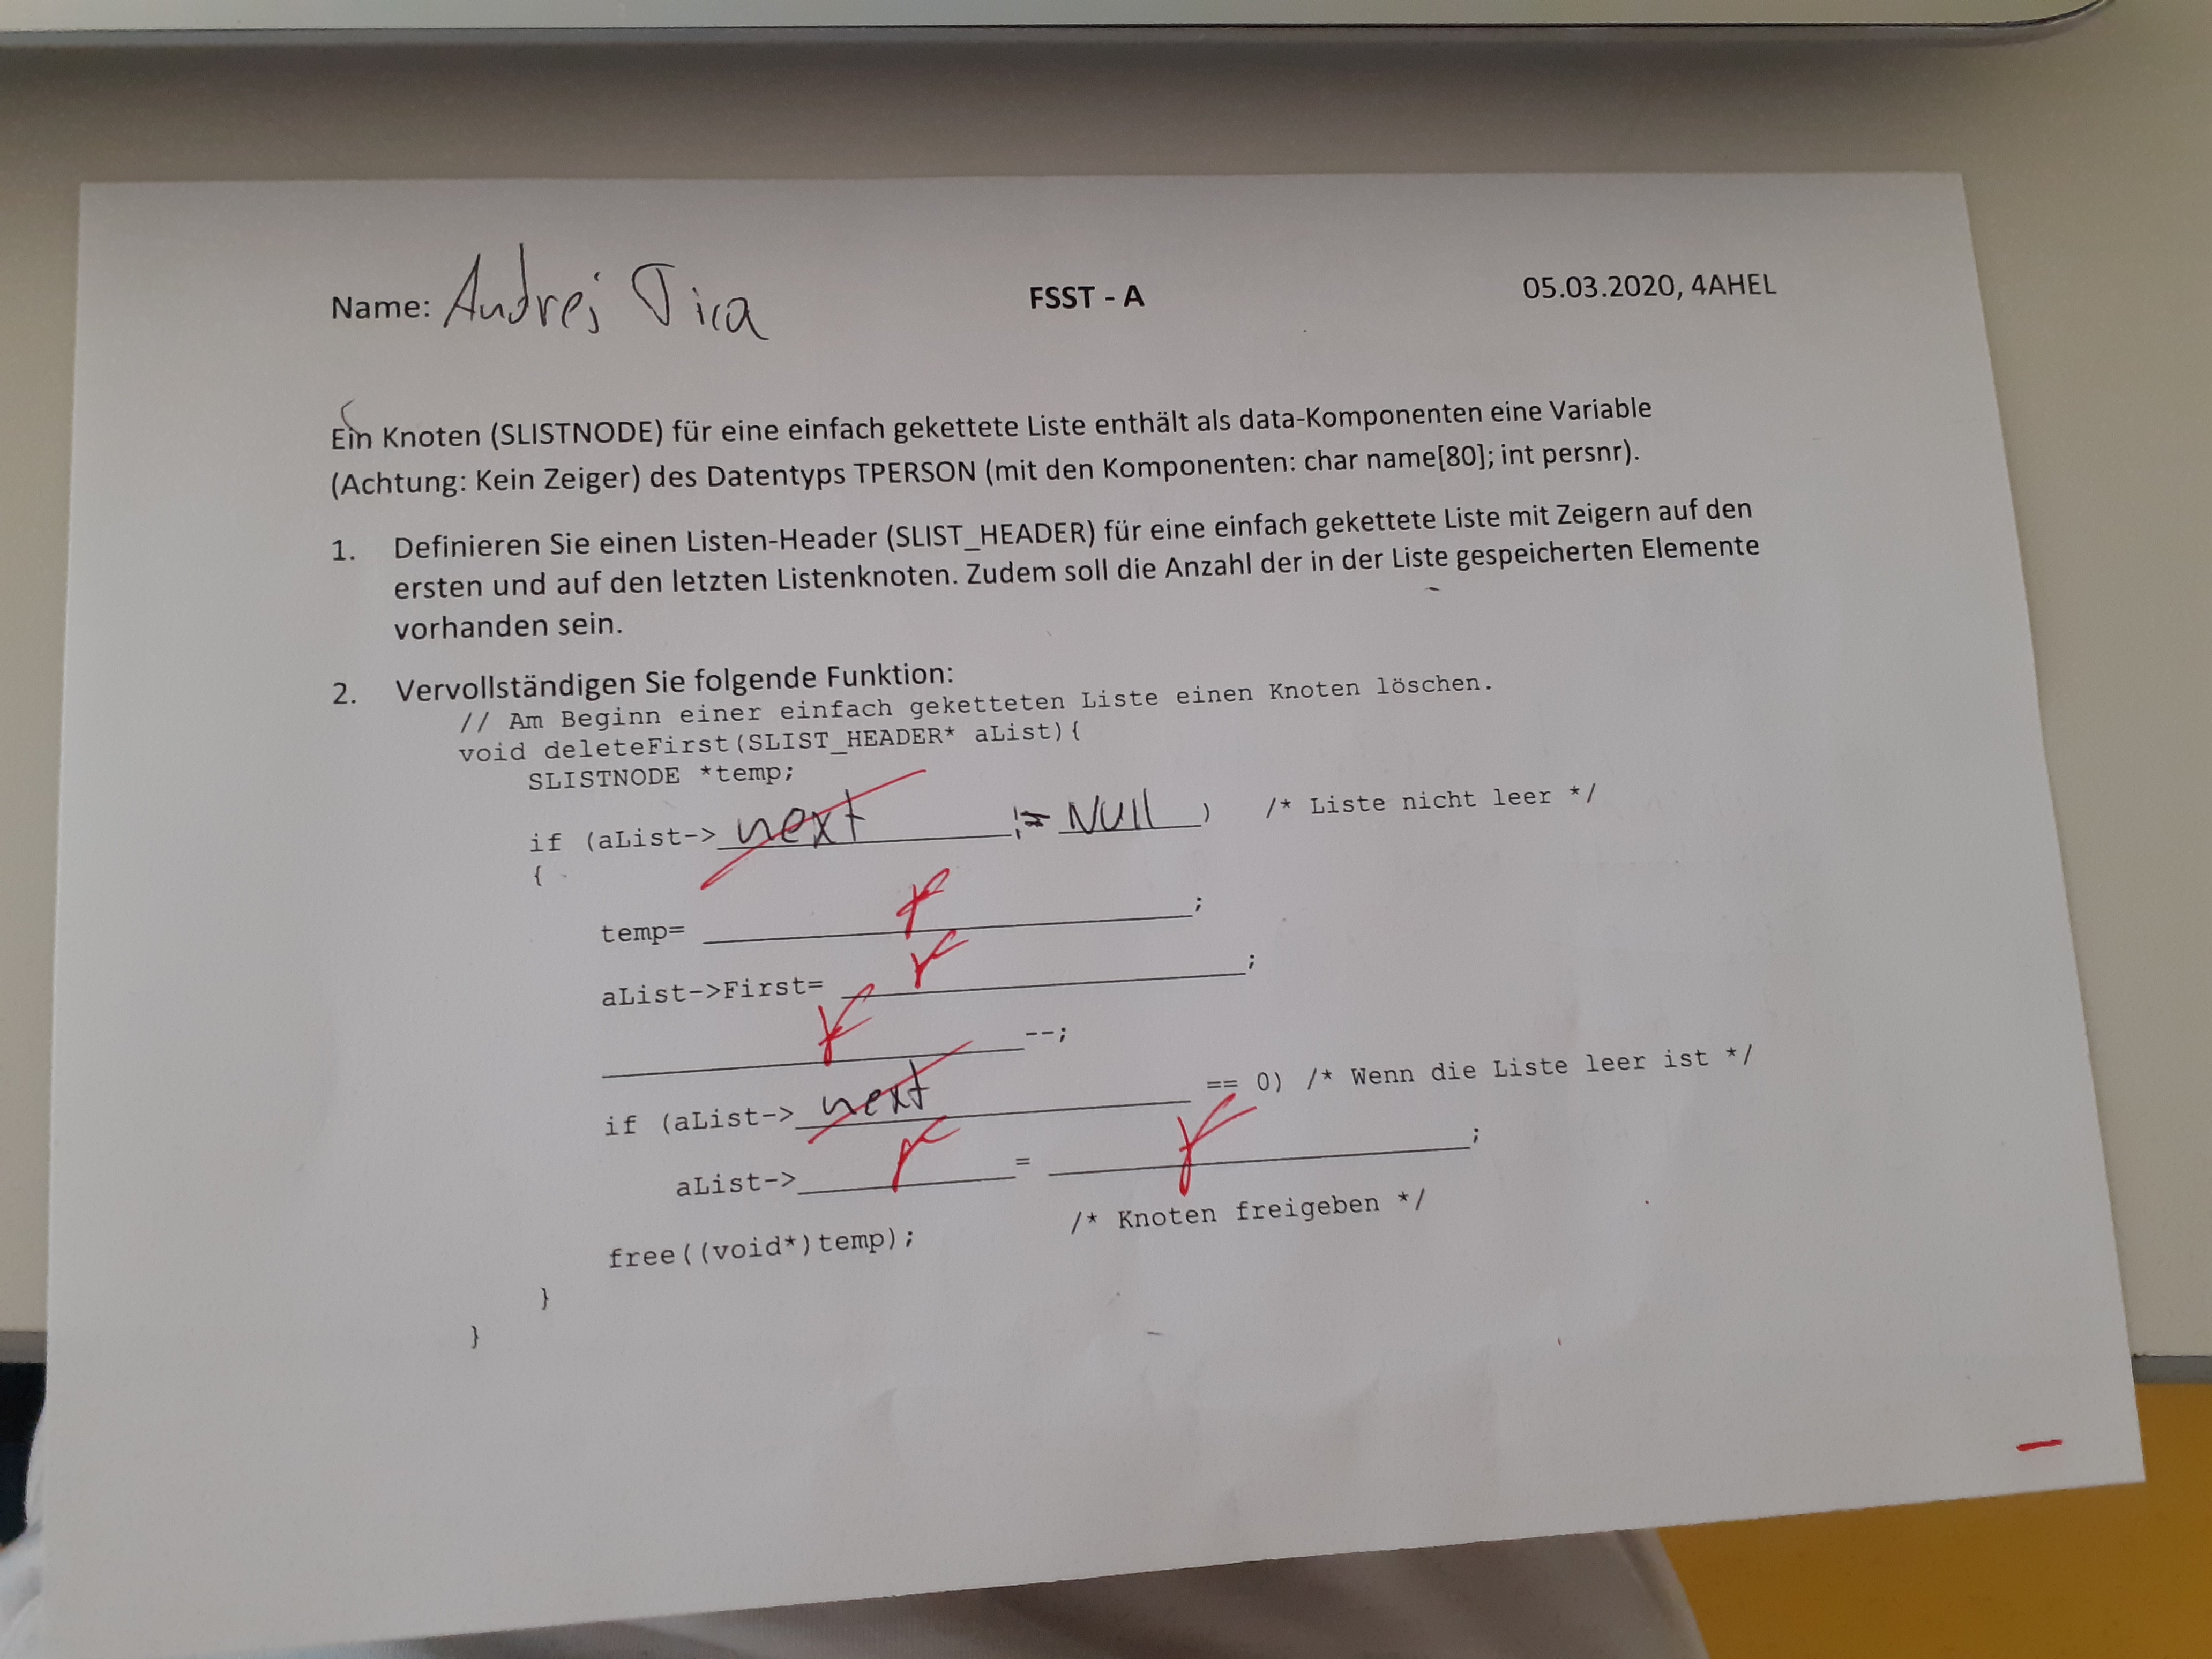 Name: Andrej Tica FSST - A 05.03.2020, 4AHEL
Ein Knoten (SLISTNODE) für eine einfach gekettete Liste enthält als data-Komponenten eine Variable
(Achtung: Kein Zeiger) des Datentyps TPERSON (mit den Komponenten: char name[80]; int persnr).
1. Definieren Sie einen Listen-Header (SLIST_HEADER) für eine einfach gekettete Liste mit Zeigern auf den
ersten und auf den letzten Listenknoten. Zudem soll die Anzahl der in der Liste gespeicherten Elemente
vorhanden sein.
2. Vervollständigen Sie folgende Funktion:
// Am Beginn einer einfach geketteten Liste einen Knoten löschen.
void deleteFirst(SLIST_HEADER* aList){
SLISTNODE *temp;
if (aList-> next != Null ) /* Liste nicht leer */
{
temp= ;
aList->First= ;
--;
if (aList-> next == 0) /* Wenn die Liste leer ist */
aList-> = ;
free((void*)temp); /* Knoten freigeben */
}
}